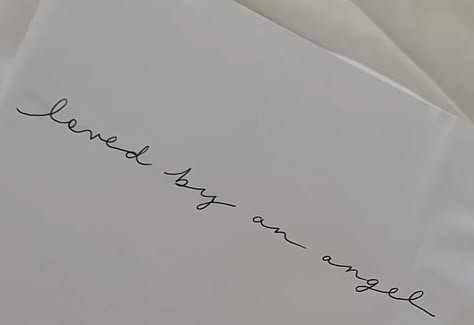 loved by an angel